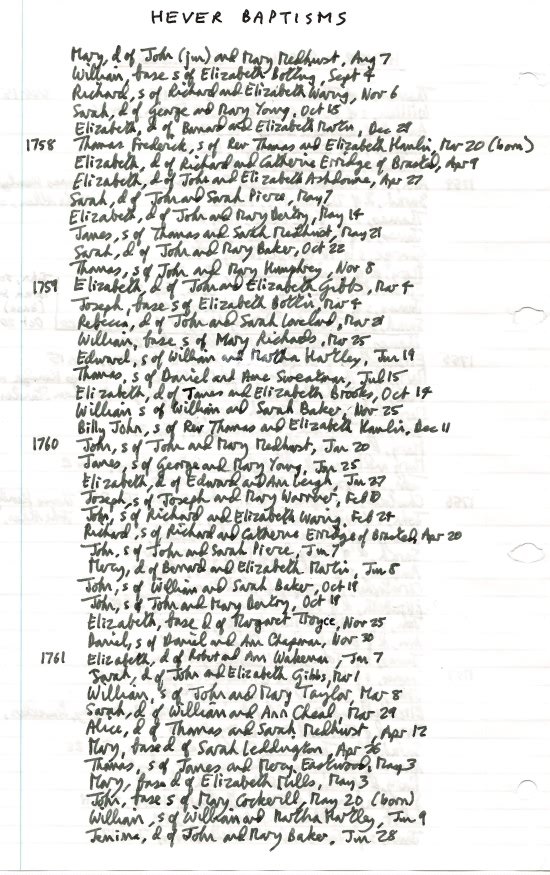 HEVER BAPTISMS
Mary, d of John (jun) and Mary Medhurst, Aug 7
William, base s of Elizabeth Botting, Sept 4
Richard, s of Richard and Elizabeth Waring, Nov 6
Sarah, d of George and Mary Young, Oct 15
Elizabeth, d of Bernard and Elizabeth Martin, Dec
1758 Thomas Frederick, s of Rev Thomas and Elizabeth Hamlin, Mar 20 (born)
Elizabeth, d of Richard and Catherine Erridge of Brasted, Apr 9
Elizabeth, d of John and Elizabeth Ashdowne, Apr 27
Sarah, d of John and Sarah Pierce, May 7
Elizabeth, d of John and Mary Dentry, May 14
James, s of Thomas and Sarah Medhurst, May 21
Sarah, d of John and Mary Baker, Oct 22
Thomas, s of John and Mary Humphrey, Nov 8
1759 Elizabeth, d of John and Elizabeth Gibbs, Mar 4
Joseph, base s of Elizabeth Bottin, Mar 4
Rebecca, d of John and Sarah Loveland, Mar 21
William, base s of Mary Richards, Mar 25
Edward, s of William and Martha Hartley, Jun 19
Thomas, s of Daniel and Anne Sweatman, Jul 15
Elizabeth, d of James and Elizabeth Brooks, Oct 14
William s of William and Sarah Baker, Nov 25
Billy John, s of Rev Thomas and Elizabeth Hamlin, Dec 11
1760 John, s of John and Mary Medhurst, Jan 20
James, s of George and Mary Young, Jan 25
Elizabeth, d of Edward and Ann Leigh, Jan 27
Joseph, s of Joseph and Mary Warriner, Feb 10
John, s of Richard and Elizabeth Waring, Feb 24
Richard, s of Richard and Catherine Erridge of Brasted, Apr 20
John, s of John and Sarah Pierce, Jun 7
Mercy, d of Bernard and Elizabeth Martin, Jun 8
John, s of William and Sarah Baker, Oct 19
John, s of John and Mary Dentry, Oct 19
Elizabeth, base d of Margaret Troyce, Nov 25
Daniel, s of Daniel and Ann Chapman, Nov 30
1761 Elizabeth, d of Robert and Ann Wakeman, Jan 7
Sarah, d of John and Elizabeth Gibbs, Mar 1
William, s of John and Mary Taylor, Mar 8
Sarah, d of William and Ann Cheal, Mar 29
Alice, d of Thomas and Sarah Medhurst, Apr 12
Mary, base d of Sarah Leddington, Apr 26
Thomas, s of James and Mercy Eastwood, May 3
Mary, base d of Elizabeth Mills, May 3
John, base s of Mary Cockerill, May 20 (born)
William, s of William and Martha Hartley, Jun 9
Jemima, d of John and Mary Baker, Jun 28